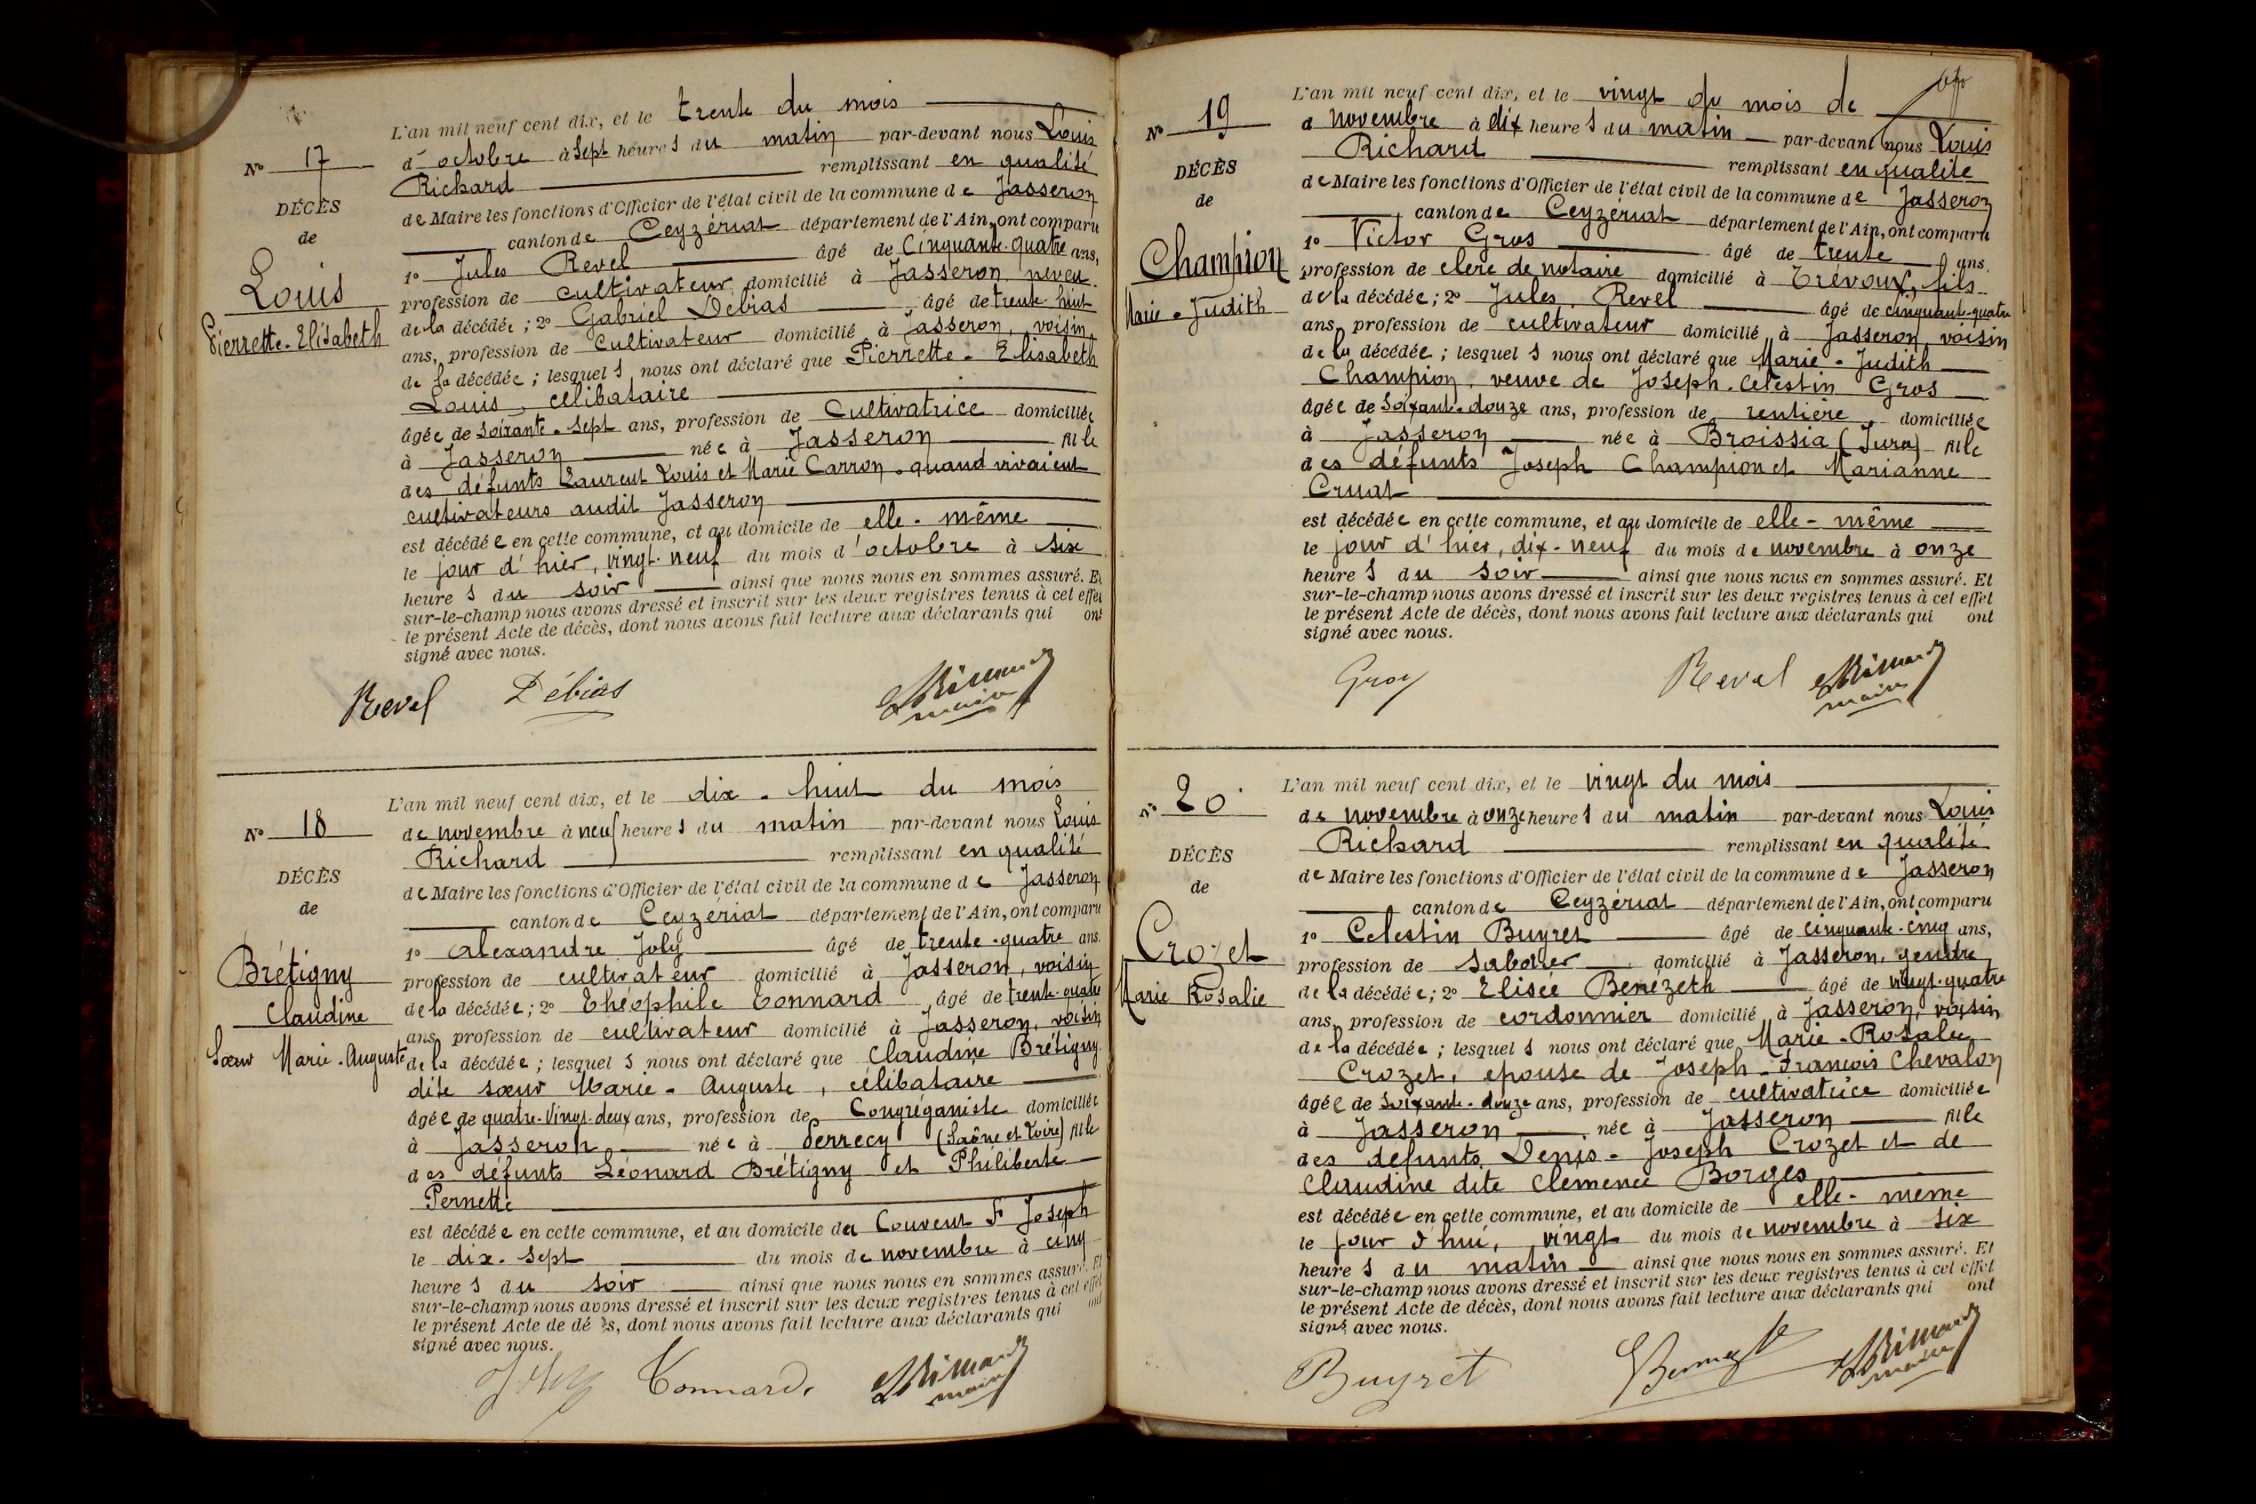 L'an mil neuf cent dix, et le trente du mois
N° 17
d'octobre à sept heures du matin par-devant nous Louis
Richard remplissant en qualité
DÉCÈS
de Maire les fonctions d'Officier de l'état civil de la commune de Jasseron
de
canton de Ceyzériat département de l'Ain, ont comparu
Louis
1° Jules Revel âgé de Cinquante-quatre ans,
profession de cultivateur domicilié à Jasseron, neveu
Pierrette-Elisabeth
de la décédée ; 2° Gabriel Debias âgé de trente-huit
ans, profession de Cultivateur domicilié à Jasseron, voisin
de la décédée ; lesquels nous ont déclaré que Pierrette-Elisabeth
Louis, célibataire
âgée de soixante-sept ans, profession de Cultivatrice domiciliée
à Jasseron née à Jasseron fille
des défunts Laurent Louis et Marie Carron, quand vivaient
cultivateurs audit Jasseron
est décédée en cette commune, et au domicile de elle-même
le jour d'hier, vingt-neuf du mois d'octobre à six
heures du soir ainsi que nous nous en sommes assuré. Et
sur-le-champ nous avons dressé et inscrit sur les deux registres tenus à cet effet
le présent Acte de décès, dont nous avons fait lecture aux déclarants qui ont
signé avec nous.
Revel Débias
maire
L'an mil neuf cent dix, et le dix-huit du mois
N° 18
de novembre à neuf heures du matin par-devant nous Louis
Richard remplissant en qualité
DÉCÈS
de Maire les fonctions d'Officier de l'état civil de la commune de Jasseron
de
canton de Ceyzériat département de l'Ain, ont comparu
1° Alexandre Joly âgé de trente-quatre ans.
Brétigny
profession de cultivateur domicilié à Jasseron, voisin
Claudine
de la décédée ; 2° Théophile Connard âgé de trente-quatre
ans, profession de cultivateur domicilié à Jasseron, voisin
Sœur Marie-Auguste
de la décédée ; lesquels nous ont déclaré que Claudine Brétigny
dite sœur Marie-Auguste, célibataire
âgée de quatre-vingt-deux ans, profession de Congréganiste domiciliée
à Jasseron née à Perrecy (Saône et Loire) fille
des défunts Léonard Brétigny et Philiberte
Pernette
est décédée en cette commune, et au domicile du Couvent St Joseph
le dix-sept du mois de novembre à cinq
heures du soir ainsi que nous nous en sommes assuré. Et
sur-le-champ nous avons dressé et inscrit sur les deux registres tenus à cet effet
le présent Acte de décès, dont nous avons fait lecture aux déclarants qui ont
signé avec nous.
Joly Connard
maire
L'an mil neuf cent dix, et le vingt du mois de
N° 19
d novembre à dix heures du matin par-devant nous Louis
Richard remplissant en qualité
DÉCÈS
de Maire les fonctions d'Officier de l'état civil de la commune de Jasseron
de
canton de Ceyzériat département de l'Ain, ont comparu
1° Victor Gros âgé de trente ans,
Champion
profession de clerc de notaire domicilié à Trévoux, fils
Marie-Judith
de la décédée ; 2° Jules Revel âgé de cinquante-quatre
ans, profession de cultivateur domicilié à Jasseron, voisin
de la décédée ; lesquels nous ont déclaré que Marie-Judith
Champion, veuve de Joseph-Célestin Gros
âgée de soixante-douze ans, profession de rentière domiciliée
à Jasseron née à Broissia (Jura) fille
des défunts Joseph Champion et Marianne
Cruat
est décédée en cette commune, et au domicile de elle-même
le jour d'hier, dix-neuf du mois de novembre à onze
heures du soir ainsi que nous nous en sommes assuré. Et
sur-le-champ nous avons dressé et inscrit sur les deux registres tenus à cet effet
le présent Acte de décès, dont nous avons fait lecture aux déclarants qui ont
signé avec nous.
Gros Revel
maire
L'an mil neuf cent dix, et le vingt du mois
N° 20
de novembre à onze heures du matin par-devant nous Louis
Richard remplissant en qualité
DÉCÈS
de Maire les fonctions d'Officier de l'état civil de la commune de Jasseron
de
canton de Ceyzériat département de l'Ain, ont comparu
1° Celestin Buyret âgé de cinquante-cinq ans,
Crozet
profession de sabotier domicilié à Jasseron, gendre
Marie Rosalie
de la décédée ; 2° Elisée Benezeth âgé de vingt-quatre
ans, profession de cordonnier domicilié à Jasseron, voisin
de la décédée ; lesquels nous ont déclaré que Marie-Rosalie
Crozet, épouse de Joseph-François Chevalon
âgée de soixante-douze ans, profession de cultivatrice domiciliée
à Jasseron née à Jasseron fille
des défunts Denis-Joseph Crozet et de
Claudine dite Clémence Borges
est décédée en cette commune, et au domicile de elle-même
le jour d'hui, vingt du mois de novembre à six
heures du matin ainsi que nous nous en sommes assuré. Et
sur-le-champ nous avons dressé et inscrit sur les deux registres tenus à cet effet
le présent Acte de décès, dont nous avons fait lecture aux déclarants qui ont
signé avec nous.
Buyret
maire